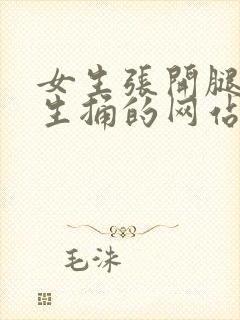 女生張開腿
生捅的网佔
毛洙